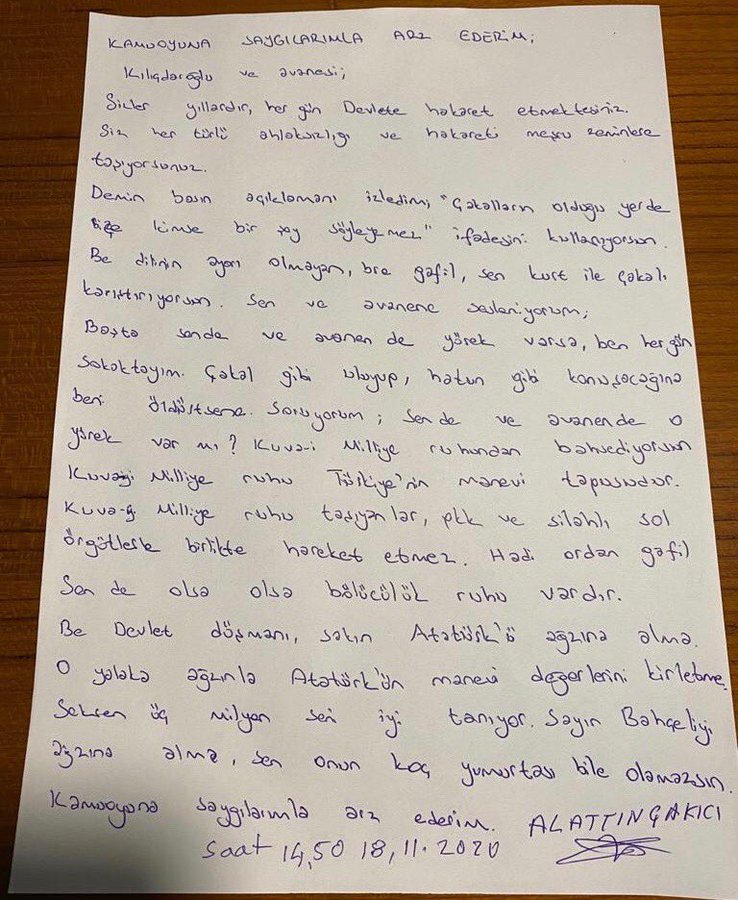 KAMUOYUNA SAYGILARIMLA ARZ EDERİM;
Kılıçdaroğlu ve avanesi;
Sizler yıllardır, her gün Devlete hakaret etmektesiniz.
Siz her türlü ahlaksızlığı ve hakareti meşru zeminlere
taşıyorsunuz.
Demin basın açıklamanı izledim, "Çakalların olduğu yerde
bize kimse bir şey söyleyemez" ifadesini kullanıyorsun.
Be dilinin ayarı olmayan, bre gafil, sen kurt ile çakalı
karıştırıyorsun. Sen ve avanene sesleniyorum;
Başta sende ve avanen de yürek varsa, ben her gün
sokaktayım. Çakal gibi uluyup, hatun gibi konuşacağına
beni öldürtsene. Soruyorum; sende ve avanende o
yürek var mı? Kuva-i Milliye ruhundan bahsediyorsun
Kuvayi Milliye ruhu Türkiye'nin manevi tapusudur.
Kuva-yi Milliye ruhu taşıyanlar, pkk ve silahlı sol
örgütlerle birlikte hareket etmez. Hadi ordan gafil
Sen de olsa olsa bölücülük ruhu vardır.
Be Devlet düşmanı, sakın Atatürk'ü ağzına alma.
O yalaka ağzınla Atatürk'ün manevi değerlerini kirletme.
Seksen üç milyon seni iyi tanıyor. Sayın Bahçeliyi
ağzına alma, sen onun koç yumurtası bile olamazsın.
Kamuoyuna saygılarımla arz ederim. ALATTİN ÇAKICI
Saat 14,50 18,11.2020